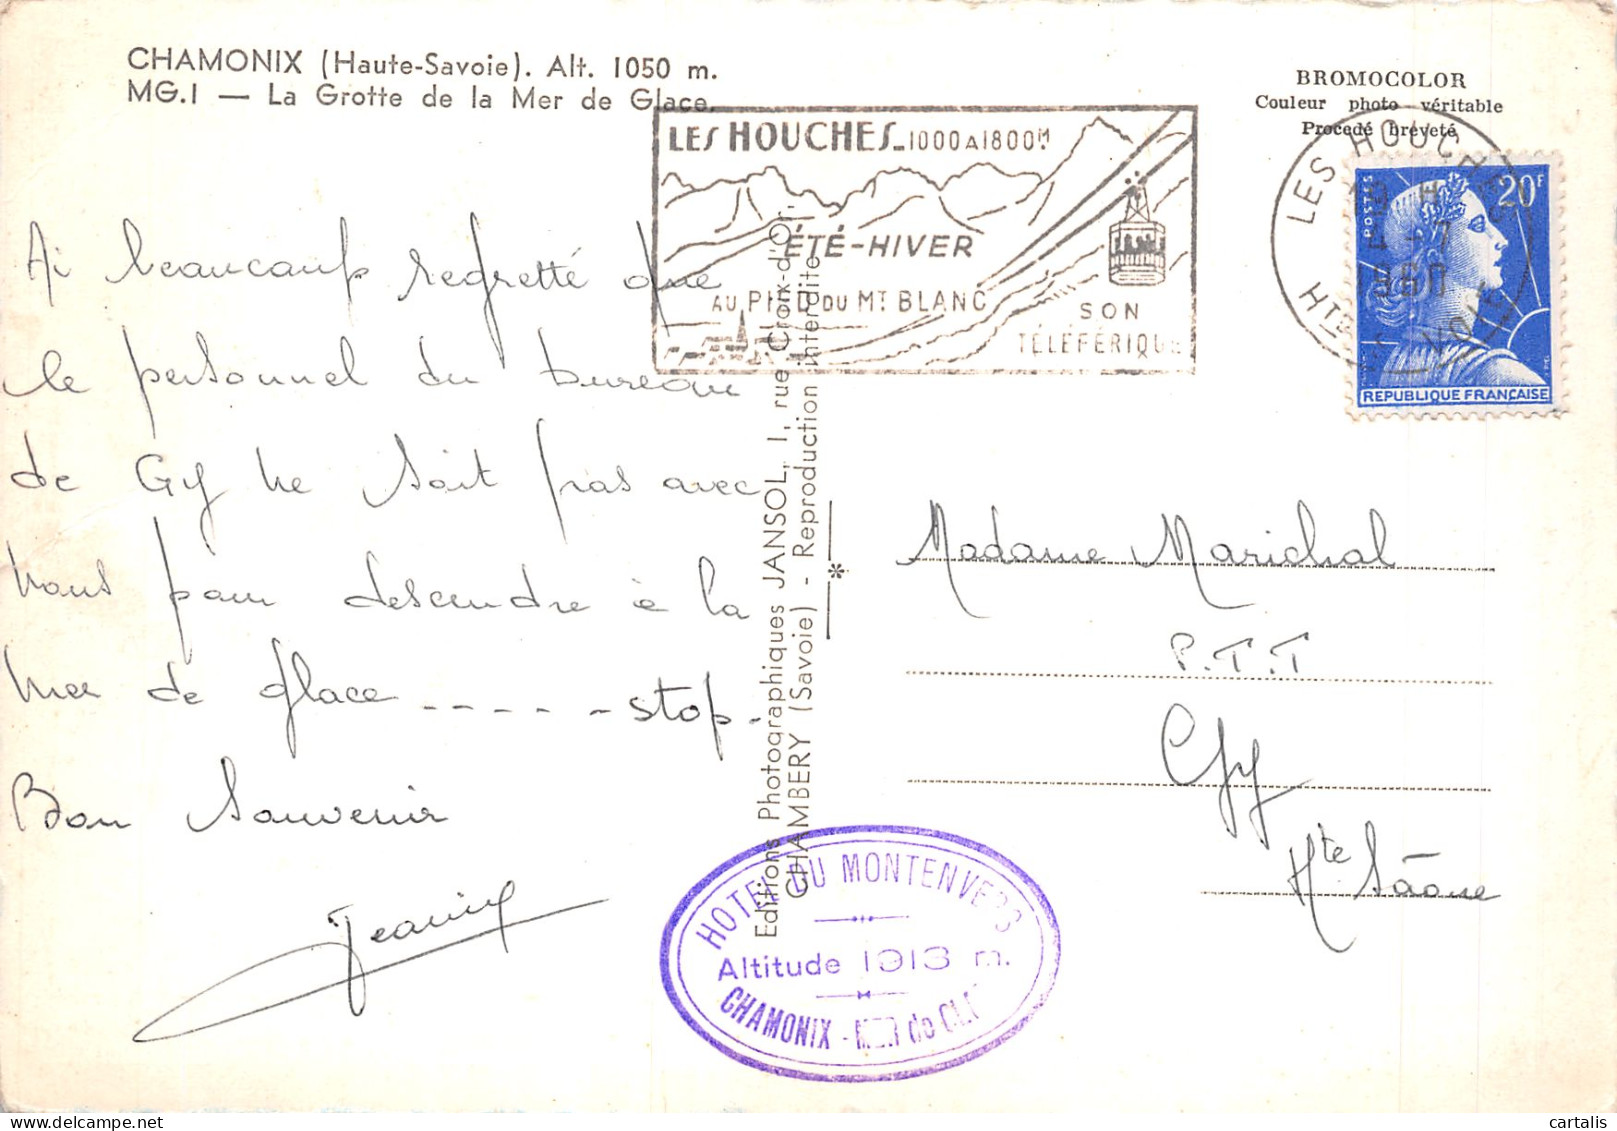 CHAMONIX (Haute-Savoie). Alt. 1050 m.
MG.1 — La Grotte de la Mer de Glace.
BROMOCOLOR
Couleur photo véritable
Procédé breveté
LES HOUCHES_1000 A 1800 M
ÉTÉ-HIVER
AU PIED DU MT BLANC
SON
TÉLÉFÉRIQUE
LES HOUCHES
POSTES
20F
REPUBLIQUE FRANÇAISE
Ai beaucoup regretté que
le personnel du bureau
de Gy ne soit pas avec
nous pour descendre à la
mer de glace _ _ _ _ _ stop.
Bon Souvenir
Jeanine
Editions Photographiques JANSOL, 1, rue Croix-d'Or,
CHAMBERY (Savoie) - Reproduction interdite
Madame Marichal
P.T.T
Gy
Hte Saône
HOTEL DU MONTENVERS
Altitude 1913 m.
CHAMONIX - MER de
cartalis